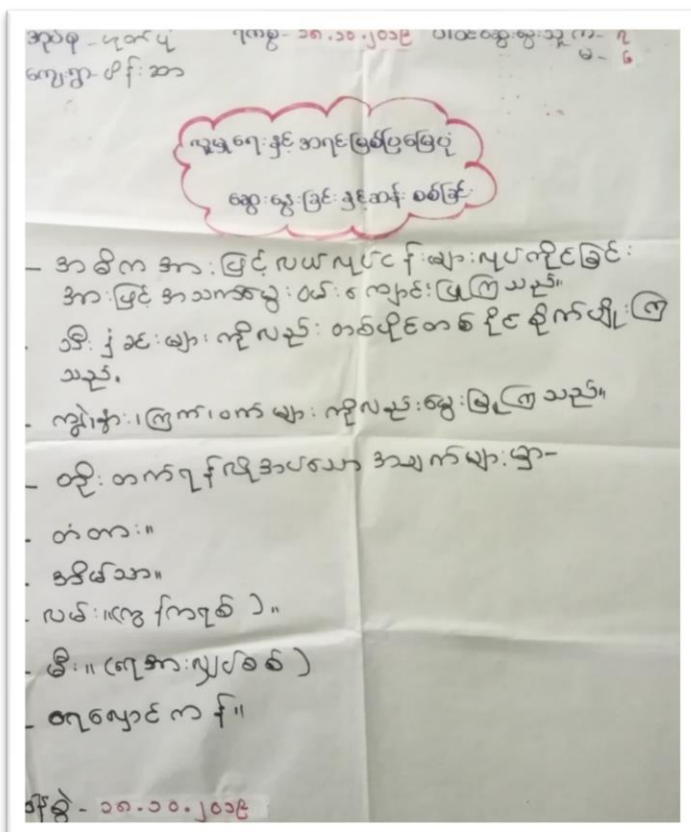 အုပ်စု - ဟုတ်ပုံ ရက်စွဲ - ၁၈.၁၀.၂၀၁၉ ပါဝင်ဆွေးနွေးသူ ကျ - ၇
မ - ၆
ကျေးရွာ - ထိန်းဆာ
လူမှုရေးနှင့် အရင်းမြစ်ပြမြေပုံ
ဆွေးနွေးခြင်းနှင့်ဆန်းစစ်ခြင်း
- အဓိကအားဖြင့် လယ်လုပ်ငန်းများလုပ်ကိုင်ခြင်း
အားဖြင့် အသက်မွေးဝမ်းကျောင်းပြုကြသည်။
- သီးနှံခင်းများကိုလည်း တစ်ပိုင်တစ်နိုင်စိုက်ပျိုးကြ
သည်။
- ကျွဲ၊နွား၊ကြက်၊ဝက်များကိုလည်းမွေးမြူကြသည်။
- တိုးတက်ရန်လိုအပ်သော အချက်များမှာ-
- တံတား။
- အိမ်သာ။
- လမ်း။(ကွန်ကရစ်)။
- မီး။ (ရေအားလျှပ်စစ်)
- ရေလှောင်ကန်။
ရက်စွဲ - ၁၈.၁၀.၂၀၁၉